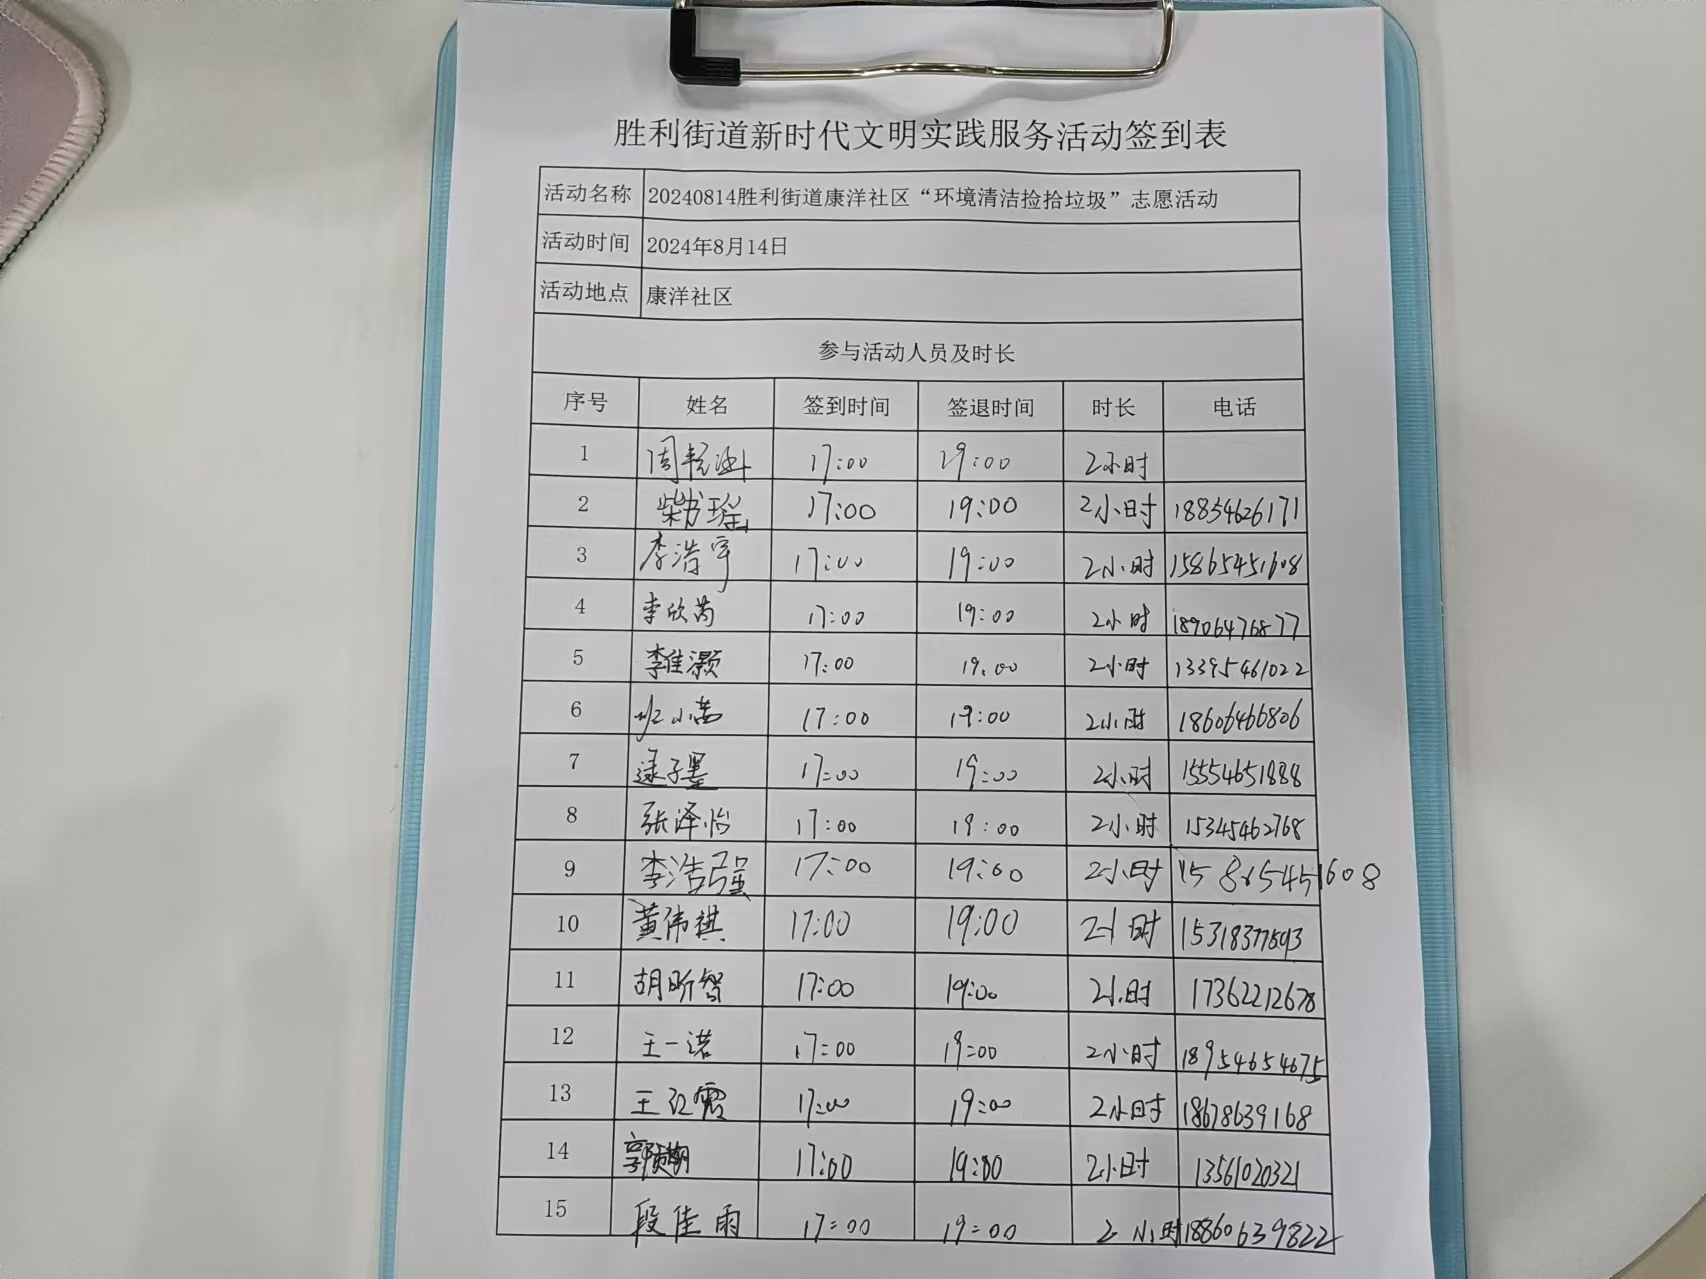 胜利街道新时代文明实践服务活动签到表
活动名称 20240814胜利街道康洋社区“环境清洁捡拾垃圾”志愿活动
活动时间 2024年8月14日
活动地点 康洋社区
参与活动人员及时长
序号 姓名 签到时间 签退时间 时长 电话
1 17:00 19:00 2小时
2 柴书瑶 17:00 19:00 2小时 18854626171
3 李浩宇 17:00 19:00 2小时 15865451608
4 李欣芮 17:00 19:00 2小时 18906476877
5 李佳灏 17:00 19:00 2小时 13395461022
6 班小茜 17:00 19:00 2小时 18606466806
7 逯子墨 17:00 19:00 2小时 15554651888
8 张泽怡 17:00 19:00 2小时 15345462768
9 李浩强 17:00 19:00 2小时 15865451608
10 黄伟祺 17:00 19:00 2小时
11 胡昕智 17:00 19:00 2小时 17362212678
12 王一诺 17:00 19:00 2小时 18954654675
13 王红霞 17:00 19:00 2小时 18678639168
14 17:00 19:00 2小时 13561020321
15 段佳雨 17:00 19:00 2小时 18860639822